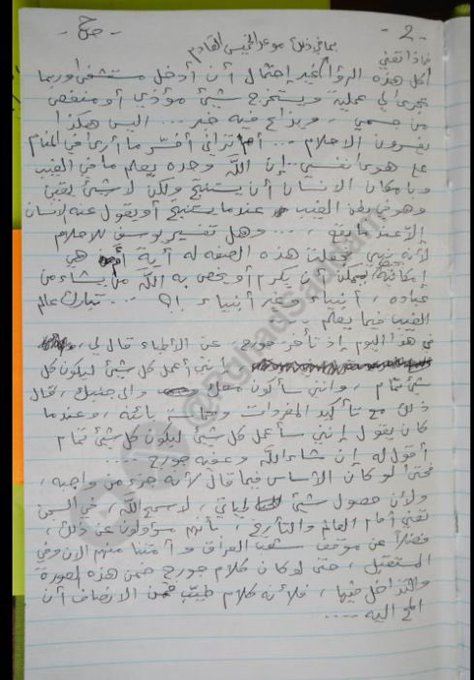 - 2 -
بما في ذلك موعد الخميس القادم
فماذا تعني
كل هذه الرؤيا غير احتمال أن أدخل مستشفى أو ربما
تجرى لي عملية ويستخرج شيئ مؤذي أو منغص
من جسمي ... أليس هكذا
يفسرون الأحلام ... أم تراني أفسر ما أرى في المنام
على هوى نفسي .. إن الله وحده يعلم ما في الغيب
وبإمكان الإنسان أن يستنتج ولكن لا شيئ يقيني
وهو في بطن الغيب عندما يستنتج أو يقول عنه إنسان
إلا عندما يقع ... وهل تفسير يوسف للأحلام
لأنه نبي جعلت هذه الصفة له آية أم هي
إمكانية يمكن أن يكرم أو يخص به الله من يشاء من
عباده ، أنبياء وغير أنبياء ؟! ... تبارك عالم
الغيب فيما يعلم
في هذا اليوم إذ تأخر جورج عن الأطباء قال لي
إنني أعمل كل شيئ ليكون كل
شيئ تمام ، وإنني سأكون معك وإلى جنبك ، قال
ذلك مع تأكيد المفردات ، وعندما
كان يقول إنني سأعمل كل شيئ ليكون كل شيئ تمام
أقول له إن شاء الله وعفية جورج ...
فحتى لو كان الأساس فيما قال لأنه جزء من واجبه ،
ولأن حصول شيئ لحياتي ، لا سمح الله ، في السجن
تعني أمام العالم والتأريخ ، بأنهم مسؤولون عن ذلك ،
فضلاً عن موقف شعب العراق وأمتنا منهم الآن وفي
المستقبل ، حتى لو كان كلام جورج ضمن هذه الصورة
والتداخل فيها ، فلأنه كلام طيب فمن الإنصاف أن
ألمح إليه ....
@RghadSaddam